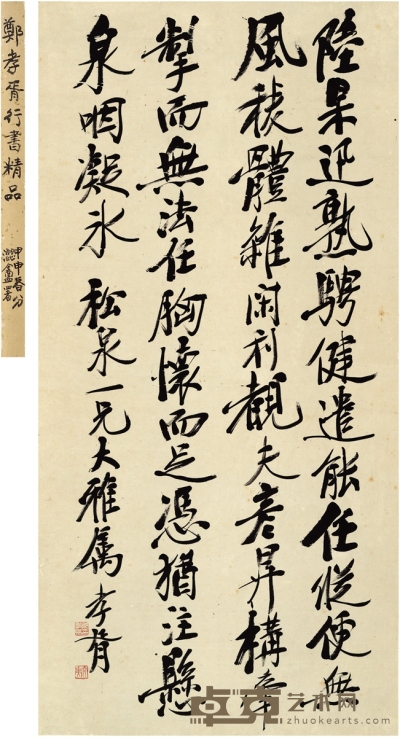 陸杲迅熟騁健遣能任縱便無
風稜體雜閑利觀夫彦昇構牽
掣而無法任胸懷而足憑猶注懸
泉咽凝氷 松泉一兄大雅属 孝胥
鄭孝胥行書精品
甲申春分
盦署
卓克艺术网
zhuokearts.com